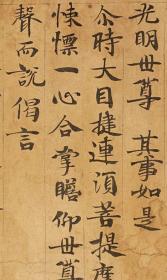 光明世尊　其事如是
尒時大目揵連須菩提摩
悚慄一心合掌瞻仰世尊
聲而說偈言